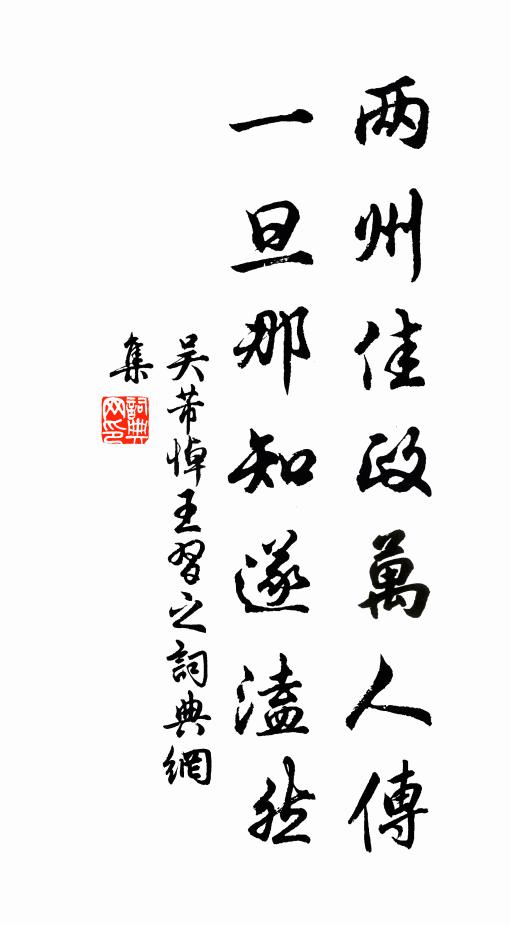 两州佳政萬人傳
一旦那知遂溘然
吴芾悼王習之詞典網
集
詞典
网印